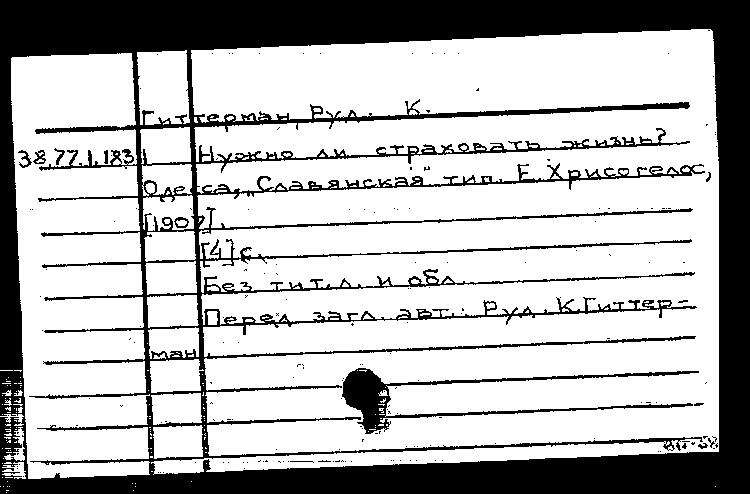 Гиттерман, Руд. К.
38.77.1.183 Нужно ли страховать жизнь?
Одесса, „Славянская" тип. Е. Хрисогелос,
[1907].
[4] с.
Без тит. л. и обл.
Перед загл. авт.: Руд. К. Гиттер=
ман.